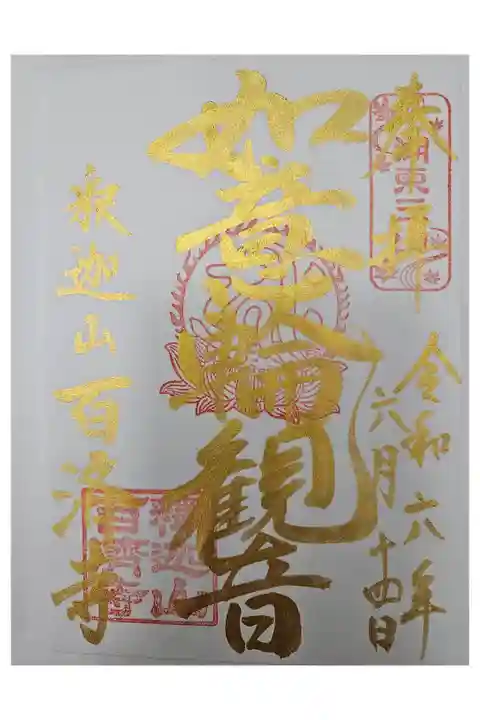 奉拝
令和六年
六月十四日
如意輪観音
釈迦山百済寺
湖東三山
釈迦山
百済寺